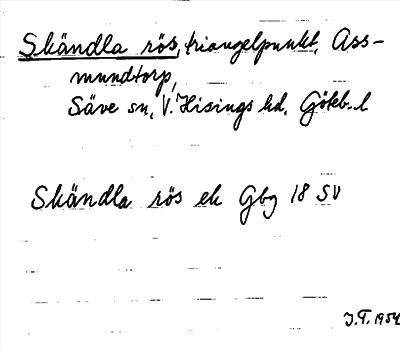 Skändla rös, triangelpunkt, Ass-
mundtorp,
Säve sn, V. Hisings hd, Göteb. l
Skändla rös ek Gbg 18 SV
J.F. 1954